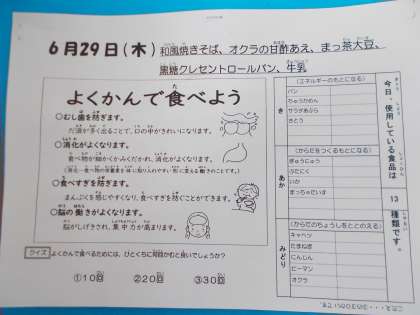 6月29日(木) 和風焼きそば、オクラの甘酢あえ、まっ茶大豆、
黒糖クレセントロールパン、牛乳
よくかんで食べよう
○むし歯を防ぎます。
だ液が多く出ることで、口の中がきれいになります。
○消化がよくなります。
食べ物が細かくかみくだかれ、消化がよくなります。
○食べすぎを防ぎます。
まんぷくを感じやすくなり、食べすぎを防ぐことができます。
○脳の働きがよくなります。
脳がしげきされ、集中力が高まります。
クイズ よくかんで食べるためには、ひとくちに何回かむと良いでしょうか?
①10回 ②20回 ③30回
今日、使用している食品は 13 種類です。
き
(エネルギーのもとになる)
パン
ちゅうかめん
サラダあぶら
さとう
あか
(からだをつくるもとになる)
ぎゅうにゅう
ぶたにく
いか
まっちゃだいず
みどり
(からだのちょうしをととのえる)
キャベツ
たまねぎ
にんじん
ピーマン
オクラ